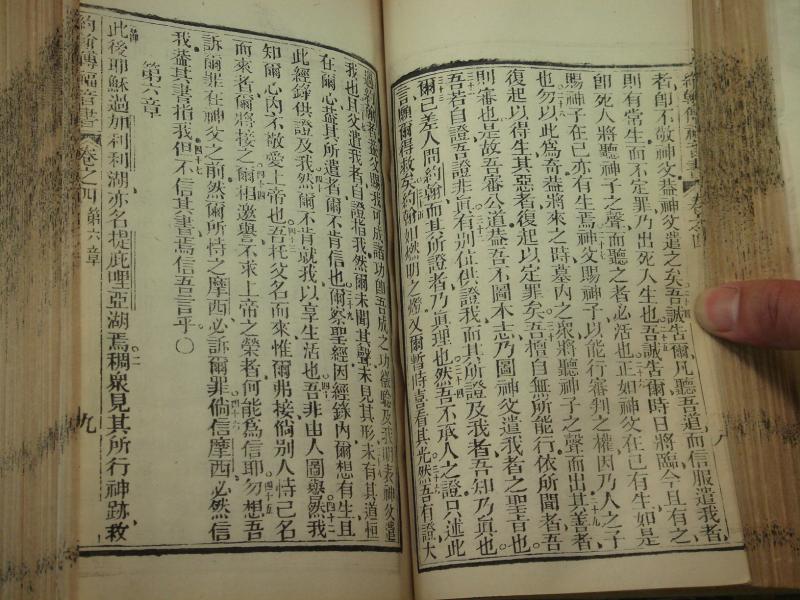 者、卽不敬神父葢神父遣之矣吾誠告爾凡聽吾道而信服遣我者、
則有常生而不定罪乃出死人生也吾誠告爾時日將臨今且有之
卽死人將聽神子之聲而聽之者必活也正如神父在己有生如是
賜神子在己亦有生焉神父賜神子以能行審判之權因乃人之子
也勿以此爲奇葢將來之時墓內之衆將聽神子之聲而出其善者
復起以得生其惡者復起以定罪矣吾擅自無所能行依所聞者吾
則審也是故吾審公道葢吾不圖本志乃圖神父遣我者之聖旨也
吾若自證吾證非眞有別在供證我而其所證及我者吾知乃眞也
爾已差人問約翰而其所證者乃眞理也然吾不承人之證只述此
言願爾得救矣約翰如燃明之燈又爾暫時喜看其光然吾有證大
過約翰者葢父賜我可成諸功卽吾成之功
我也且父遣我者自證指我然爾未聞其聲未見其形未有其道恒
在爾心葢其所遣者爾不肯信也爾察聖經因經錄內爾想有生且
此經錄供證及我然爾不肯就我以享生活也吾非由人圖譽然我
知爾心內不敬愛上帝也吾托父名而來惟爾弗接倘別人恃己名
而來者爾將接之爾相邀譽不求上帝之榮者何能爲信耶勿想吾
訴爾罪在神父之前然爾所恃之摩西必訴爾罪倘信摩西必然信
我葢其書指我但不信其書焉信吾言乎〇
第六章
此後耶穌過加利利湖亦名提庇哩亞湖焉稠衆見其所行神跡救
約翰傳福音書 卷之四 第六章 九